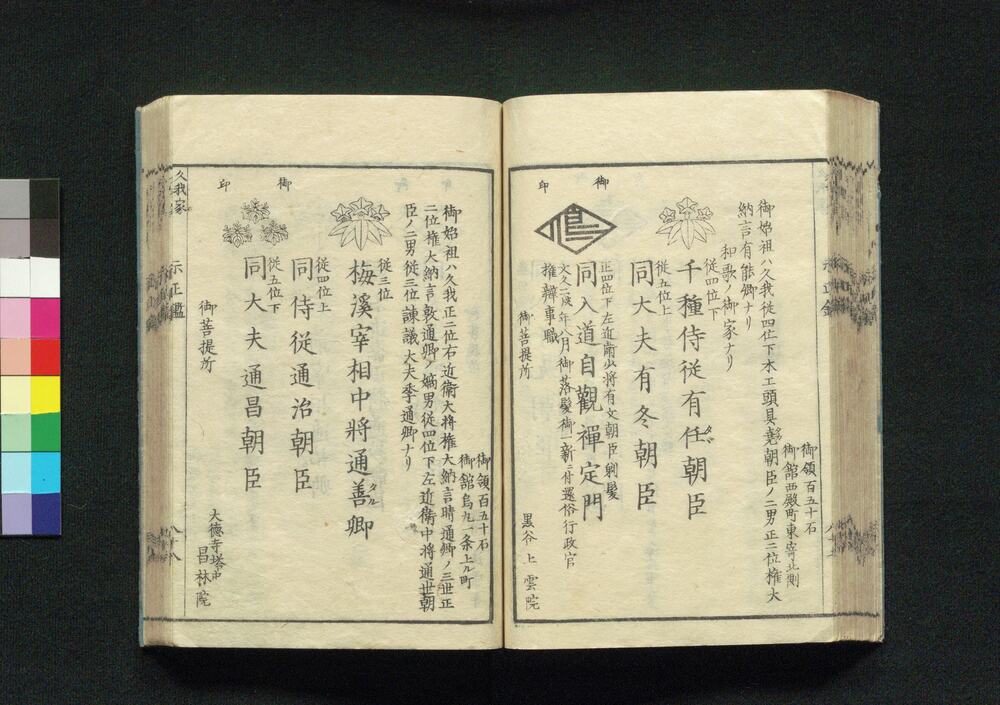 御領百五十石
御館西殿町東寄北側
御始祖ハ久我従四位下木工頭具堯朝臣ノ二男正二位権大
納言有能卿ナリ
和歌ノ御家ナリ
御印
従四位下
千種侍従有任朝臣
従五位上
同大夫有冬朝臣
正四位下左近衛少将有文朝臣剃髪
同入道自觀禪定門
文久二戌年八月御落髪御一新ニ付還俗行政官
権辨事職
御菩提所
黒谷上雲院
御領百五十石
御館烏丸一条上ル町
御始祖ハ久我正二位右近衛大将権大納言晴通卿ノ三世正
二位権大納言敦通卿ノ嫡男従四位下左近衛中将通世朝
臣ノ二男従三位諫議大夫季通卿ナリ
御印
従三位
梅溪宰相中將通善卿
タル
従四位上
同侍従通治朝臣
従五位下
同大夫通昌朝臣
御菩提所
大徳寺塔中
昌林院
久我家
示正鑑
八十八